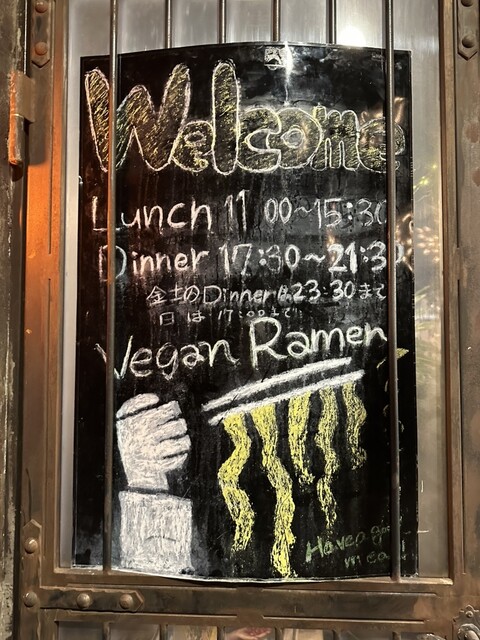 Welcome
Lunch 11 00~15:30
Dinner 17:30~21:30
金土のDinnerは23:30まで
日は17:00まで
Vegan Ramen
Have a